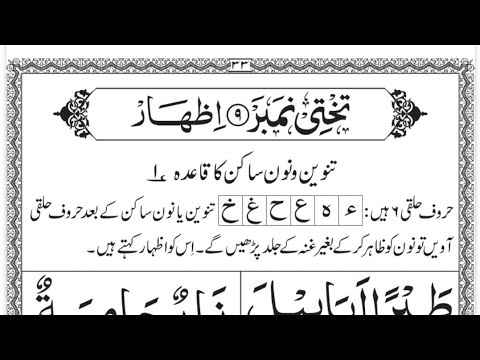 ۳۳
تختی نمبر ۹ اِظہار
تنوین و نون ساکن کا قاعدہ ۱؎
حروف حلقی ۶ ہیں: ء ہ ع ح غ خ تنوین یا نون ساکن کے بعد حروف حلقی
آویں تو نون کو ظاہر کر کے بغیر غنہ کے جلد پڑھیں گے۔ اِس کو اظہار کہتے ہیں۔
طَيْرًا اَبَابِيْلَ نَارٌ حَامِيَةٌ